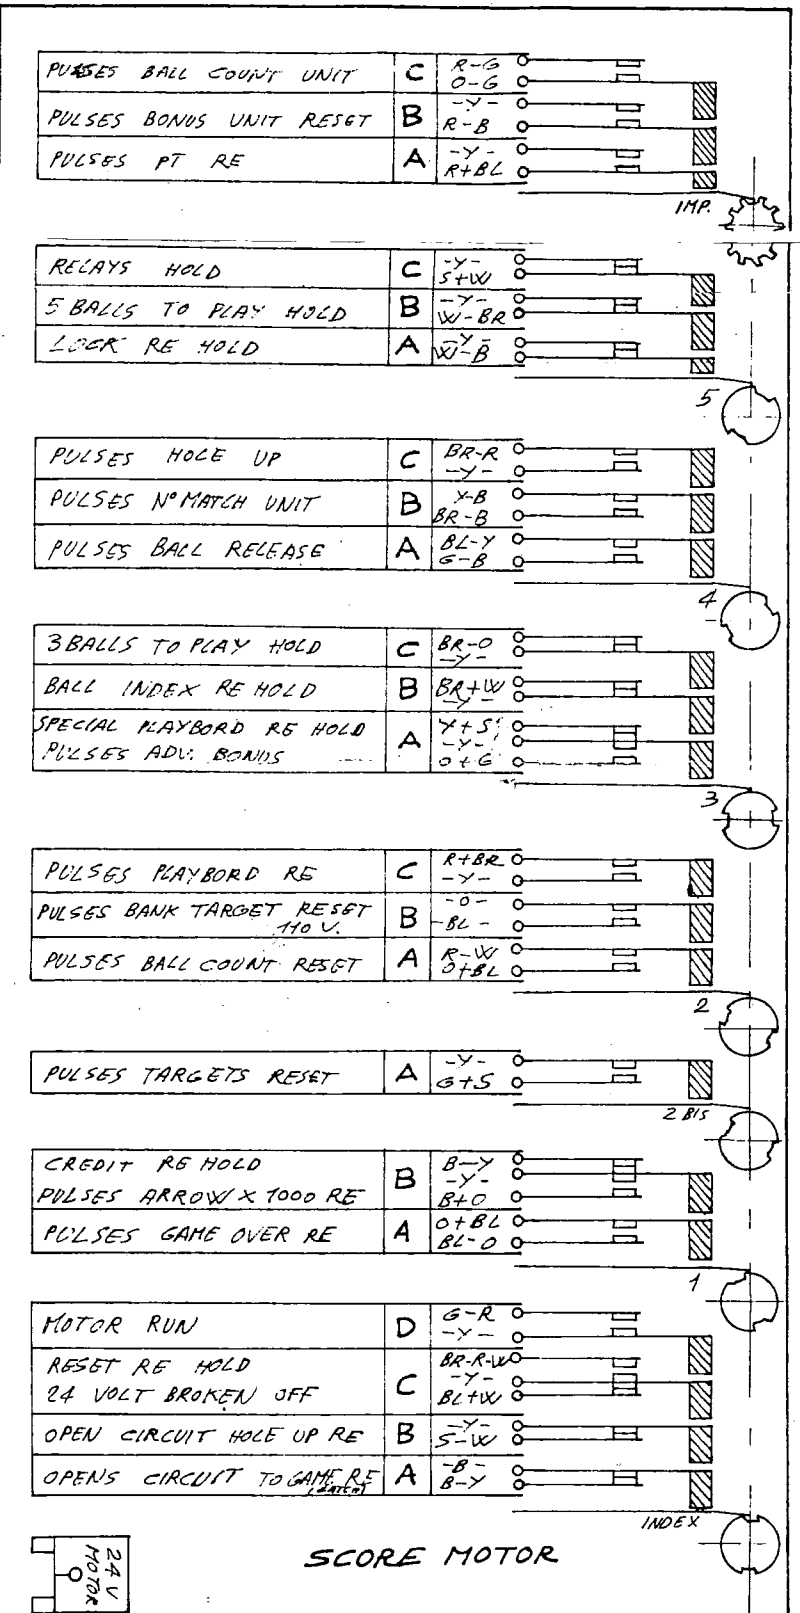 PULSES BALL COUNT UNIT C R-G
O-G
PULSES BONUS UNIT RESET B -Y-
R-B
PULSES PT RE A -Y-
R+BL
IMP.
RELAYS HOLD C -Y-
S+W
5 BALLS TO PLAY HOLD B -Y-
W-BR
LOCK RE HOLD A -Y-
W-B
5
PULSES HOLE UP C BR-R
-Y-
PULSES N° MATCH UNIT B Y-B
BR-B
PULSES BALL RELEASE A BL-Y
G-B
4
3 BALLS TO PLAY HOLD C BR-O
-Y-
BALL INDEX RE HOLD B BR+W
-Y-
SPECIAL PLAYBORD RE HOLD A Y+S
-Y-
PULSES ADV. BONUS O+G
3
PULSES PLAYBORD RE C R+BR
-Y-
PULSES BANK TARGET RESET B -O-
110 V. -BL-
PULSES BALL COUNT RESET A R-W
O+BL
2
PULSES TARGETS RESET A -Y-
G+S
2 BIS
CREDIT RE HOLD B B-Y
-Y-
PULSES ARROW X 1000 RE B+O
PULSES GAME OVER RE A O+BL
BL-O
1
MOTOR RUN D G-R
-Y-
RESET RE HOLD C BR-R-W
-Y-
24 VOLT BROKEN OFF BL+W
OPEN CIRCUIT HOLE UP RE B -Y-
S-W
OPENS CIRCUIT TO GAME RE A -B-
(LATCH) B-Y
INDEX
SCORE MOTOR
24 V
MOTOR